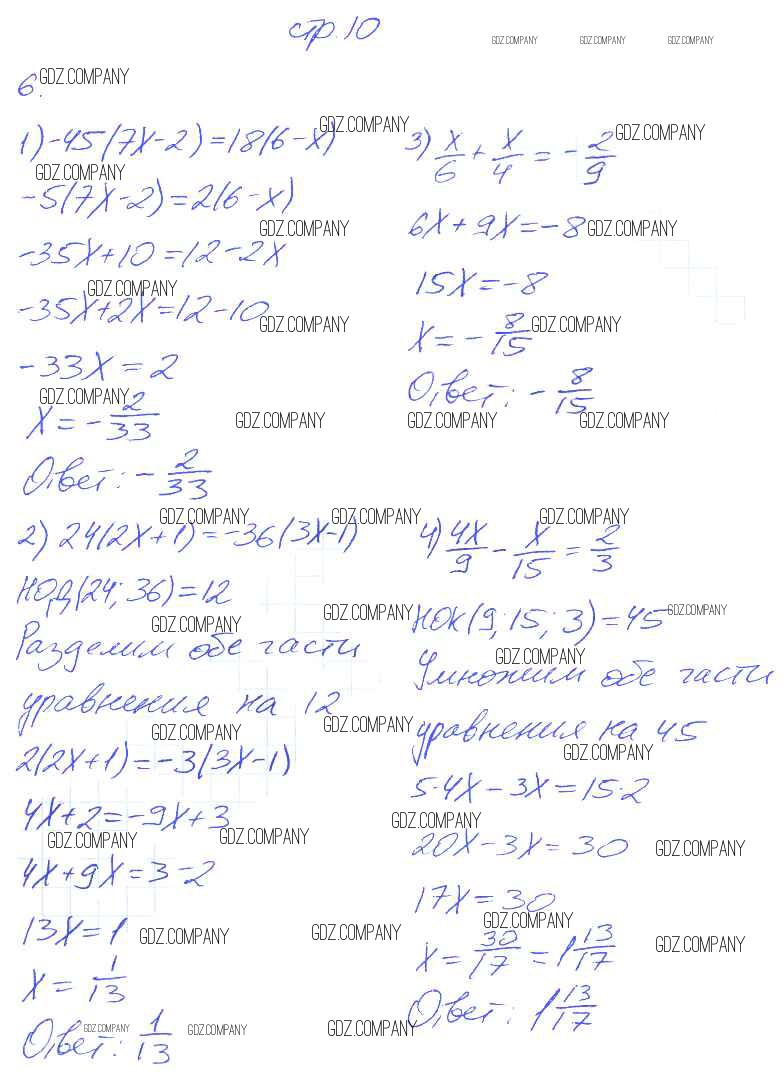 стр. 10
GDZ.COMPANY GDZ.COMPANY GDZ.COMPANY
6. GDZ.COMPANY
1) -45(7x-2)=18(6-x)
GDZ.COMPANY
GDZ.COMPANY
-5(7x-2)=2(6-x)
GDZ.COMPANY
-35x+10=12-2x
GDZ.COMPANY
-35x+2x=12-10
GDZ.COMPANY
-33x=2
GDZ.COMPANY
x=-2/33
GDZ.COMPANY
Ответ: -2/33
GDZ.COMPANY GDZ.COMPANY
2) 24(2x+1)=-36(3x-1)
НОД(24; 36)=12
GDZ.COMPANY GDZ.COMPANY
Разделим обе части
уравнения на 12
GDZ.COMPANY GDZ.COMPANY
2(2x+1)=-3(3x-1)
4x+2=-9x+3
GDZ.COMPANY GDZ.COMPANY
4x+9x=3-2
13x=1 GDZ.COMPANY GDZ.COMPANY
x=1/13
Ответ: 1/13
GDZ.COMPANY GDZ.COMPANY GDZ.COMPANY
3) x/6+x/4=-2/9
GDZ.COMPANY
6x+9x=-8 GDZ.COMPANY
15x=-8
x=-8/15 GDZ.COMPANY
Ответ: -8/15
GDZ.COMPANY GDZ.COMPANY
GDZ.COMPANY
4) 4x/9-x/15=2/3
НОК(9; 15; 3)=45 GDZ.COMPANY
GDZ.COMPANY
Умножим обе части
уравнения на 45
GDZ.COMPANY
5·4x-3x=15·2
GDZ.COMPANY
20x-3x=30 GDZ.COMPANY
17x=30
GDZ.COMPANY
x=30/17=1 13/17 GDZ.COMPANY
Ответ: 1 13/17